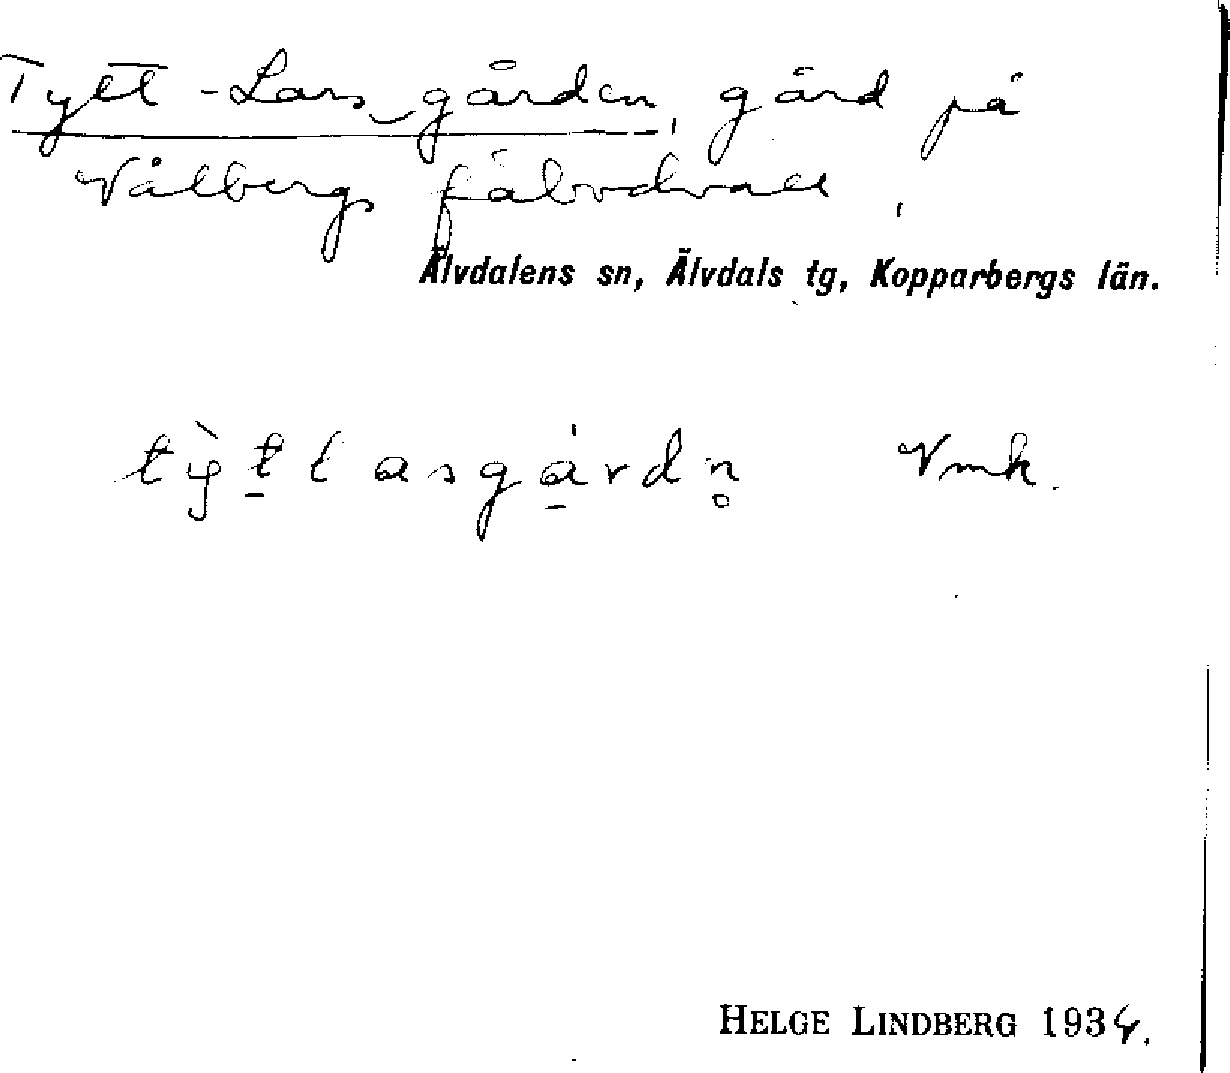 Tytt-Lars-gården, gård på
Vålbergs fäbodvall,
Älvdalens sn, Älvdals tg, Kopparbergs län.
Vmk.
HELGE LINDBERG 1934.